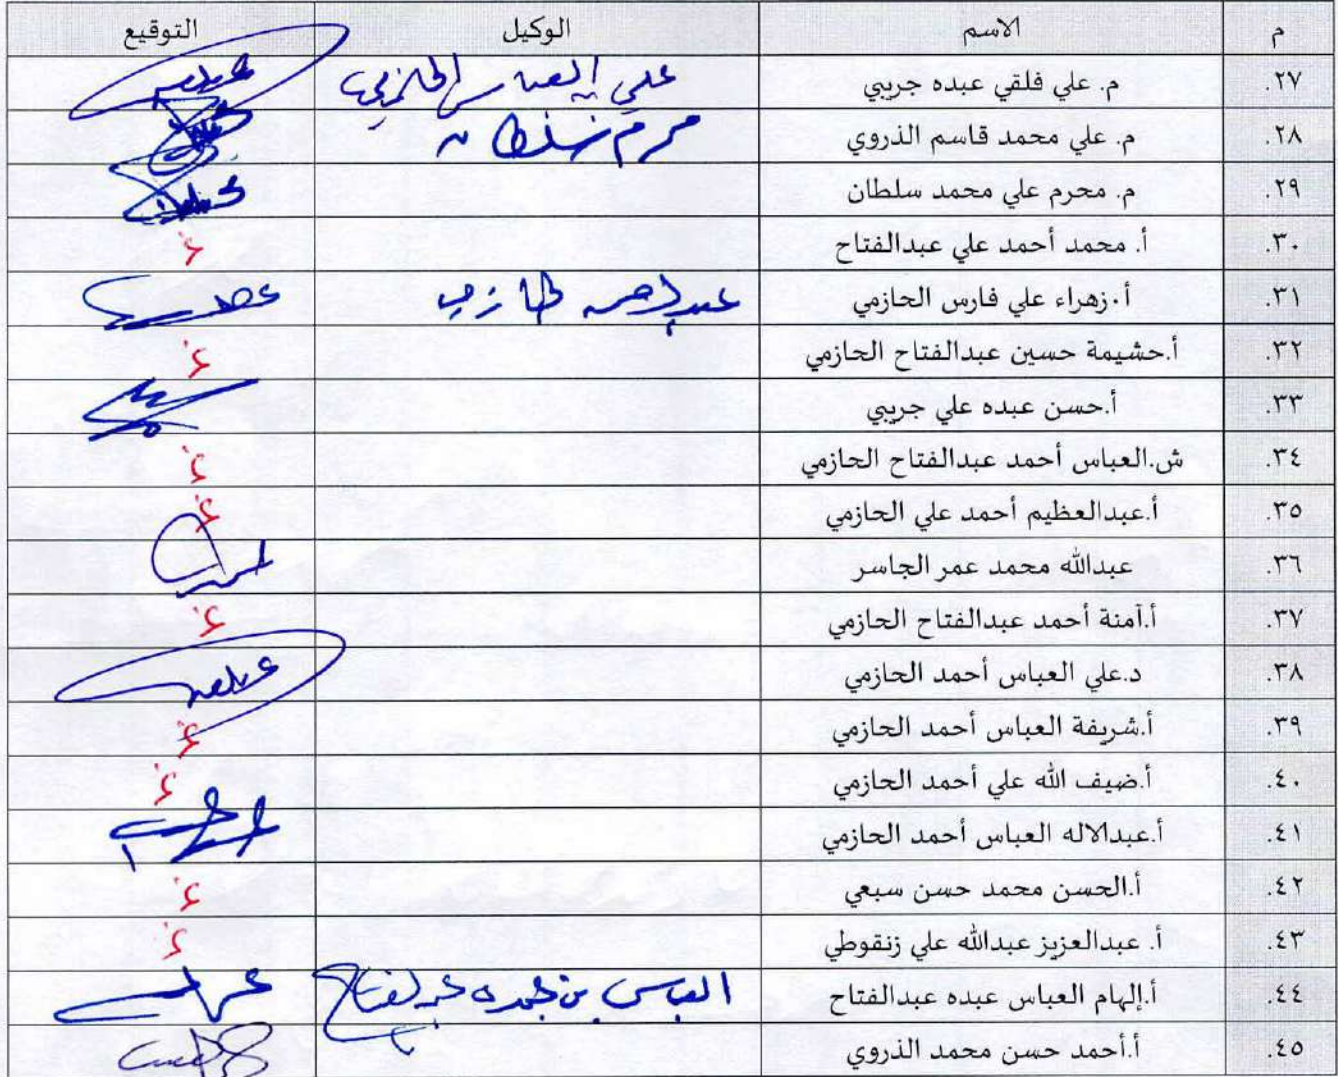 م الاسم الوكيل التوقيع
.٢٧ م. علي فلقي عبده جريبي علي العباس الحازمي
.٢٨ م. علي محمد قاسم الذروي محرم سلطان
.٢٩ م. محرم علي محمد سلطان
.٣٠ أ. محمد أحمد علي عبدالفتاح غ
.٣١ أ.زهراء علي فارس الحازمي الحازمي
.٣٢ أ.حشيمة حسين عبدالفتاح الحازمي غ
.٣٣ أ.حسن عبده علي جريبي
.٣٤ ش.العباس أحمد عبدالفتاح الحازمي غ
.٣٥ أ.عبدالعظيم أحمد علي الحازمي غ
.٣٦ عبدالله محمد عمر الجاسر
.٣٧ أ.آمنة أحمد عبدالفتاح الحازمي غ
.٣٨ د.علي العباس أحمد الحازمي
.٣٩ أ.شريفة العباس أحمد الحازمي غ
.٤٠ أ.ضيف الله علي أحمد الحازمي غ
.٤١ أ.عبدالاله العباس أحمد الحازمي
.٤٢ أ.الحسن محمد حسن سبعي غ
.٤٣ أ. عبدالعزيز عبدالله علي زنقوطي غ
.٤٤ أ.إلهام العباس عبده عبدالفتاح العباس بن عبده عبدالفتاح
.٤٥ أ.أحمد حسن محمد الذروي